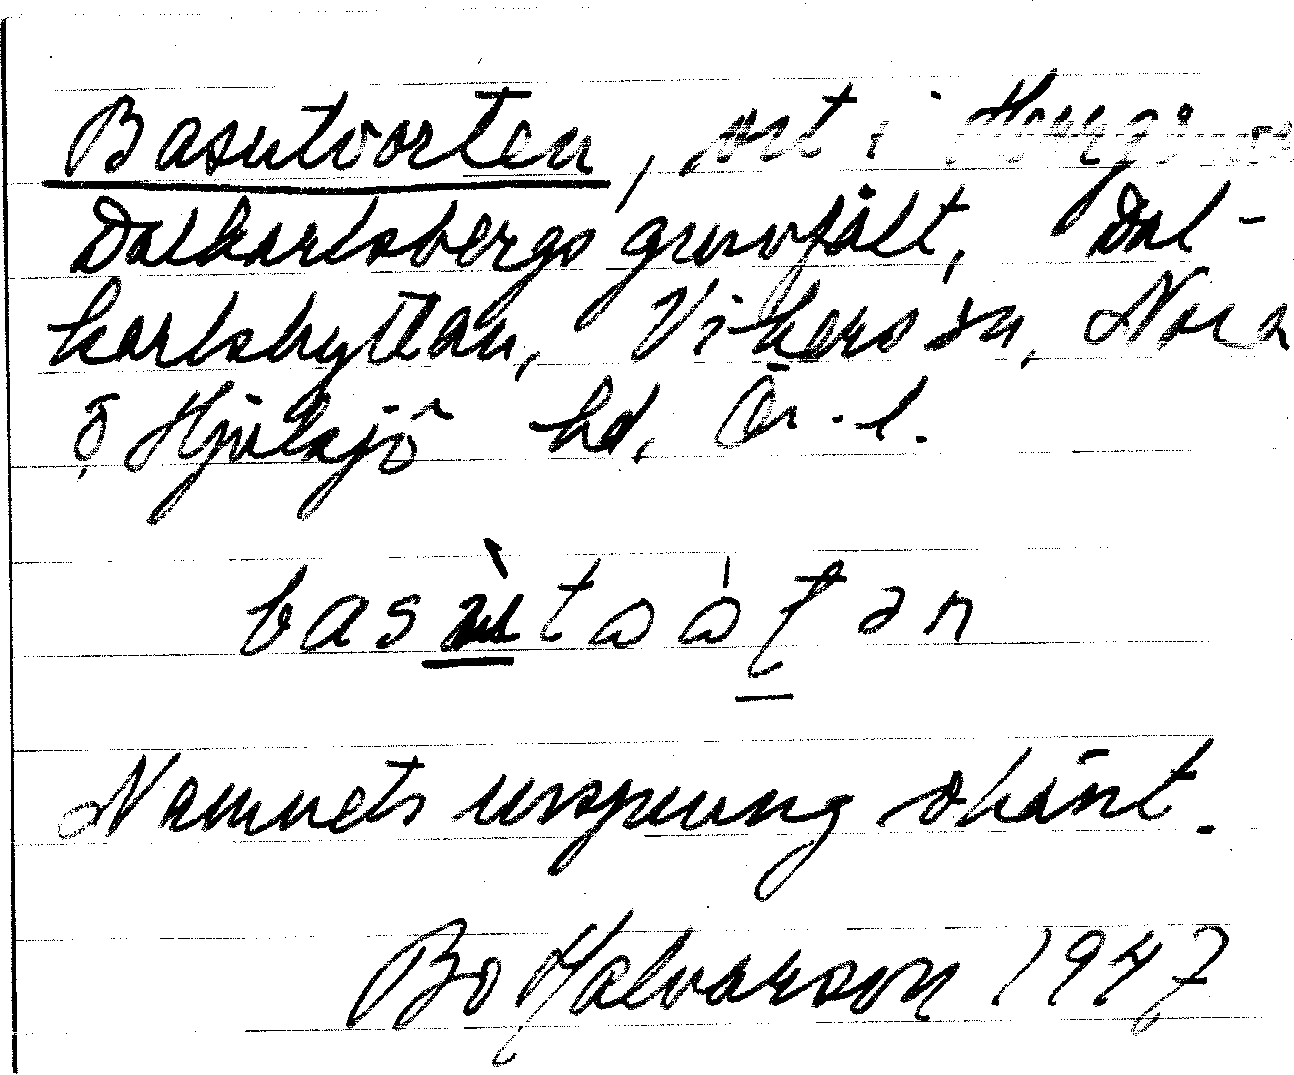 Basutorten, ort i
Dalkarlsbergs gruvfält, Dal-
karlshyttan, Vikers sn, Nora
o. Hjulsjö hd, Ör. l.
Namnets ursprung okänt.
Bo Halvarson 1947